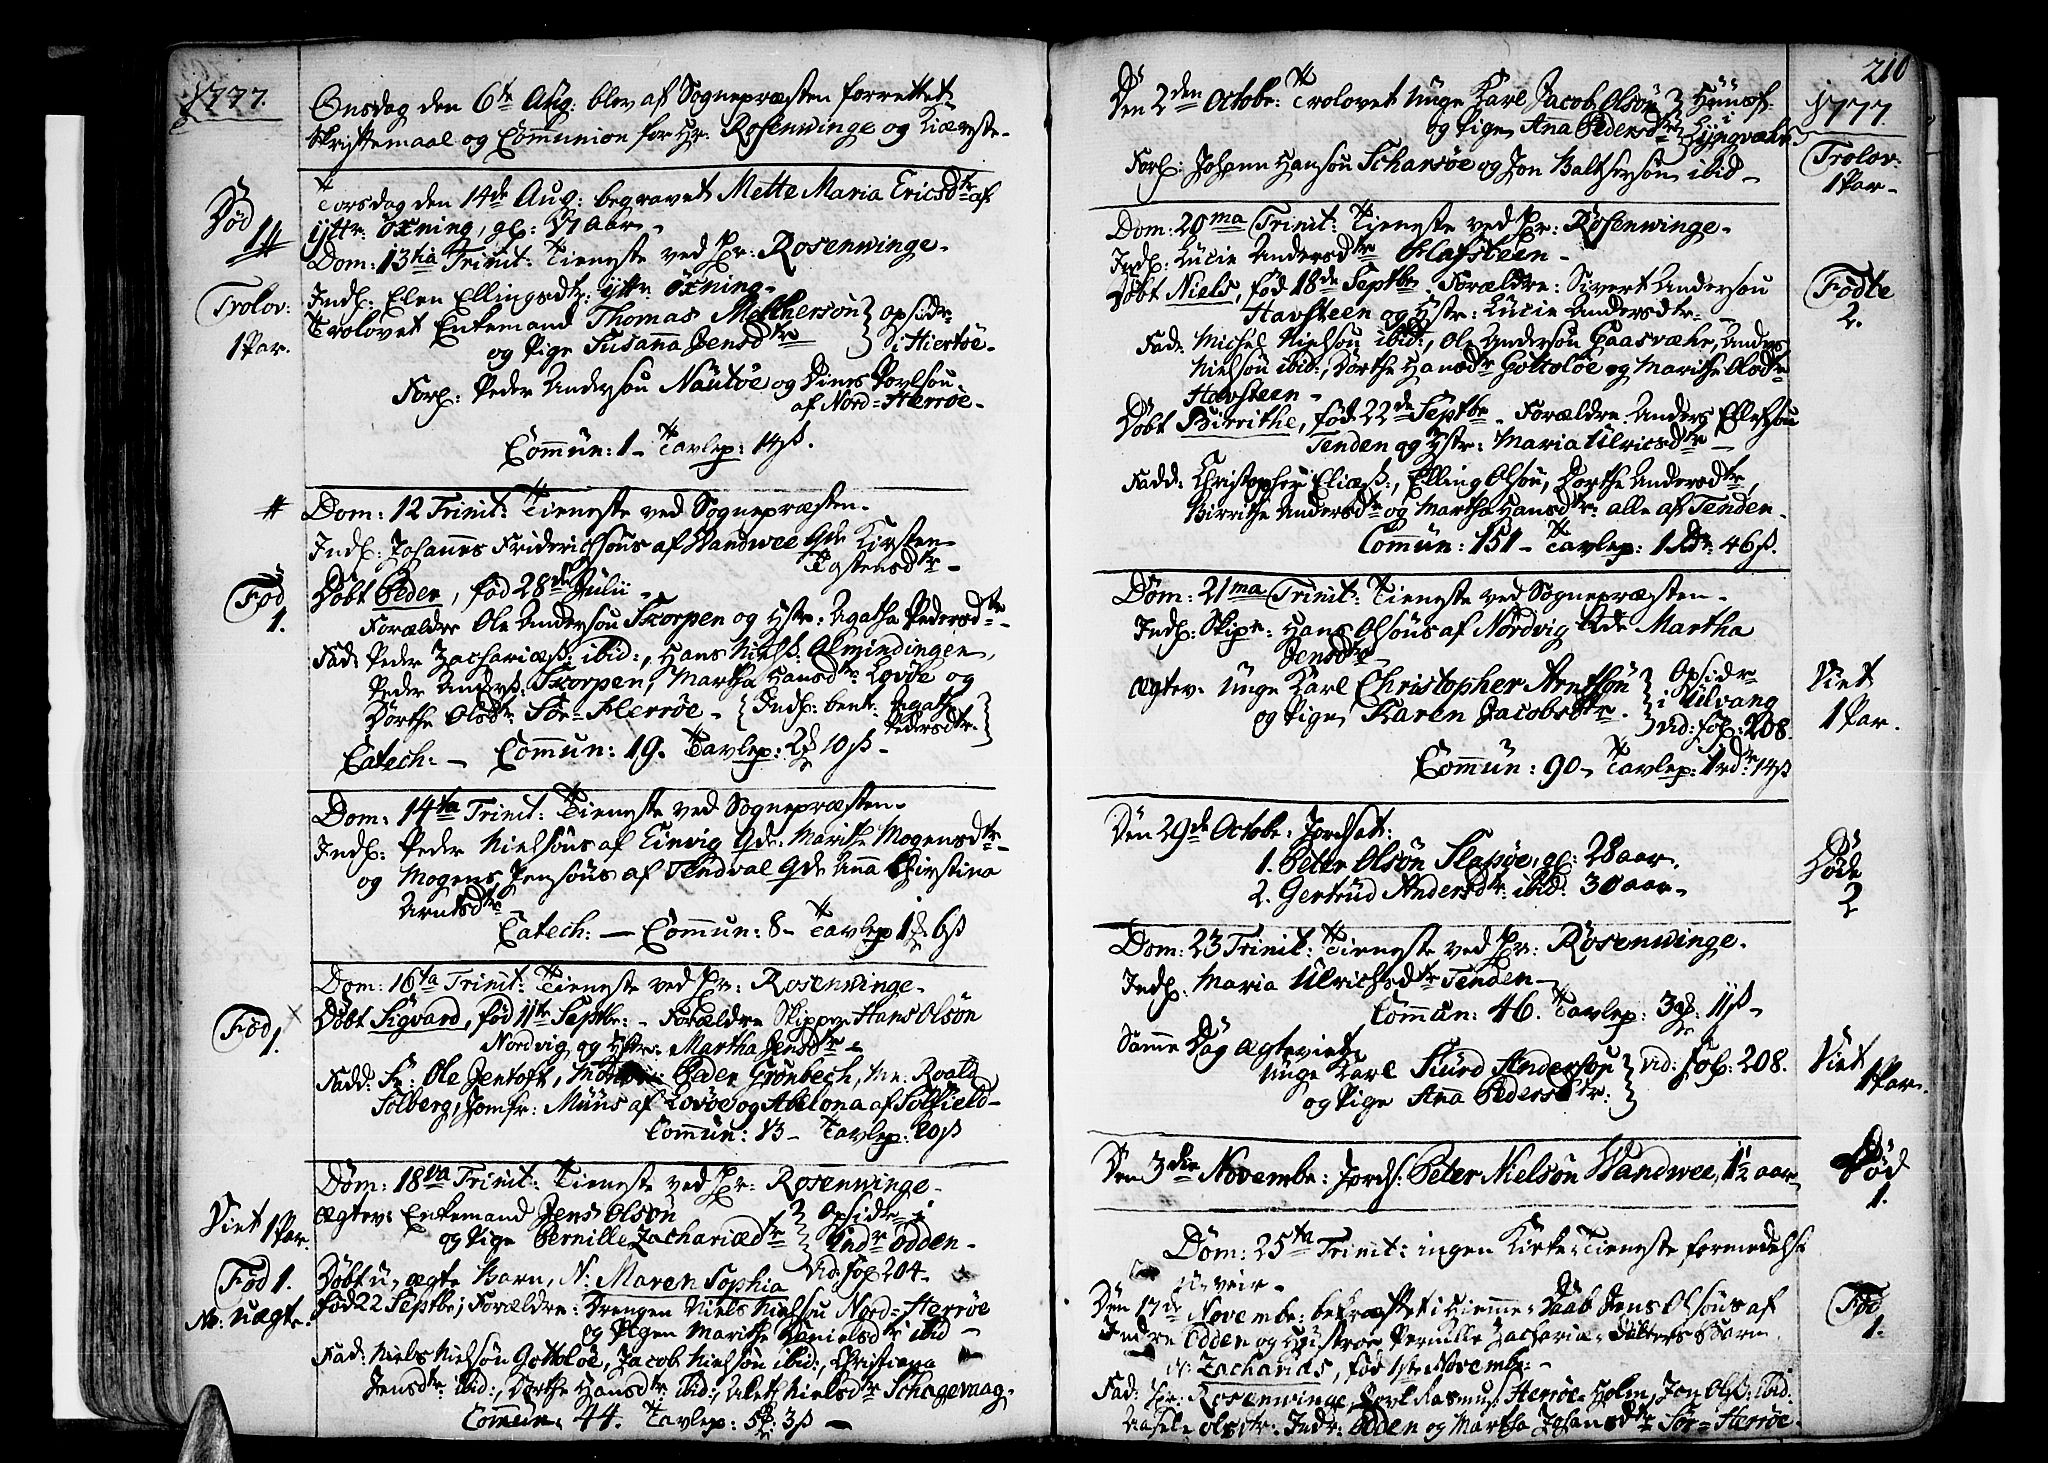 1777.
Onsdag den 6te Aug: blev af Sognepræsten forrettet
Skriftemaal og Communion for Hr: Rosenwinge og Kiæreste.
Død
14
Torsdag den 14de Aug: begravet Mette Maria Ericsdtr af
yttr: Öxning, gl: 17 Aar.
Dom: 13tia Trinit: Tieneste ved Hr: Rosenwinge.
Trolov:
1 Par.
Indl: Elen Ellingsdtr: yttr: Öxning.
Trolovet Enkemand Thomas Methersøn } Opsidr:
og Pige Susanna Jensdtr } i Hiertøe.
Forl: Peder Andersøn Nautøe og Dines Povlsøn
af Nord-Herrøe.
Commun: 1 - Tavlep: 14ß.
Dom: 12 Trinit: Tieneste ved Sognepræsten.
Indl: Johannes Friderichsøns af Wandwee Qde Kirsten
Tostensdtr
Fød
1.
Døbt Peder, fød 28de Julii
Forældre Ole Andersøn Skorpen og Hstr: Agatha Pedersdtr
Fad: Peder Zachariæß: ibid:, Hans Nielß: Almindingen,
Peder Anderß: Skorpen, Martha Hansdtr Lovøe og
Dorthe Olsdtr: Sør-Herrøe. { Indl: bent: Agathe
Pedersdtr. }
Catech: - Commun: 19. Tavlep: 2 10ß
Dom: 14ta Trinit: Tieneste ved Sognepræsten.
Indl: Peder Nielsøns af Einvig Qde: Marithe Mogensdtr
og Mogens Jensøns af Tendval Qde Anna Chirstina
Arntsdtr
Catech: - Commun: 8 - Tavlep 1 6ß
Dom: 16ta Trinit: Tieneste ved Hr: Rosenwinge.
Fød
1.
Døbt Sigvard, fød 11te Septbr: - Forældre Skipper Hans Olsøn
Nordvig og Hstr: Martha Jensdtr
Fadd: Sr: Ole Jentoft, Peder Grønbech, Mr: Roald
Solberg, Jomfr: Muus af Lovøe og Abelona af Solfield
Commun: 13 - Tavlep: 20ß
Dom: 18va Trinit: Tieneste ved Hr: Rosenwinge.
Viet 1 Par.
Ægtev: Enkemand Jens Olsøn } Opsidr: i
og Pige Pernille Zachariædtr } Indr Odden.
Vid: fol 204.
Fød 1.
No: uægt.
Døbt u-ægte Barn, N: Maren Sophia
fød 22 Septbr; Forældre: Drengen Niels Nielsøn Nord-Herrøe
og Pigen Marithe Danielsdtr ibid
Fad: Niels Nielsøn Gottoløe, Jacob Nielsøn ibid:, Christiana
Jensdtr: ibid:, Dorthe Hansdtr ibid:, Nielsdtr Schagevaag.
Commun: 44. Tavlep: 5 3ß
210
1777.
Den 2den Octobr: Trolovet Unge Karl Jacob Olsøn } Huusf:
og Pige Ana Pedersdtr } i Lyngvær.
Trolov:
1 Par.
Forl: Johann Hansøn Scharsøe og Jon Baltzersøn ibid
Dom: 20ma Trinit: Tieneste ved Hr: Rosenwinge.
Indl: Lucie Andersdtr Hafsteen
Fødte
2.
Døbt Niels, fød 18de Septbr Forældre: Sivert Andersøn
Havsteen og Hstr: Lucie Andersdtr.
Fad: Michel Nielsøn ibid:, Ole Andersøn Gaasvær, Anders
Nielsøn ibid:, Dorthe Hansdtr Gottoløe og Marithe Olsdtr
Havsteen
Døbt Birrithe, fød 22de Septbr Forældre: Anders Ellefsøn
Tenden og Hstr: Maria Ulricsdtr
Fadd: Christopher Eliæß:, Elling Olsøn, Dorthe Andersdtr,
Birrithe Andersdtr og Martha Hansdtr: alle af Tenden.
Commun: 151 - Tavlep: 1 Rdr: 46ß.
Dom: 21ma Trinit: Tieneste ved Sognepræsten.
Indl: Skipr: Hans Olsøns af Nordvig Qde Martha
Jensdtr
Viet
1 Par.
Ægtev. Unge Karl Christopher Arntsøn } Opsidr
og Pige Karen Jacobsdtr. } i Ulvang
vid: fol: 208.
Commun: 90 - Tavlep: 1 rdr: 14ß
Den 29de Octobr: Jordsat:
Døde
2
1. Peter Olsøn Slapøe, gl: 28 aar.
2. Gertrud Andersdtr: ibid: 30 aar.
Dom: 23 Trinit: Tieneste ved Hr: Rosenwinge.
Indl: Maria Ulrichsdtr Tenden
Commun: 46. Tavlep: 3 11ß
Samme Dag Ægteviet
Viet
1 Par.
Unge Karl Siurd Andersøn } vid: fol: 208.
og Pige Ana Pedersdtr: }
Den 3die Novembr: Jords: Peter Nielsøn Wandwee, 1½ aar
Død
1.
Dom: 25te Trinit: ingen Kirke-Tieneste formedelst
u-veir
Fød
1.
Den 17de Novembr: bekræftet i Hiemme-Daab Jens Olsøns af
Indre Odden og Hustroe Pernille Zachariæ-Datters Barn
N: Zacharias, fød 1ste Novembr:
Fad: Hr: Rosenwinge, Povl Rasmuß Herrøe-Holm, Jon Olß: ibid:
Olsdtr: Indr: Odden og Martha Johansdtr Sør-Herrøe.